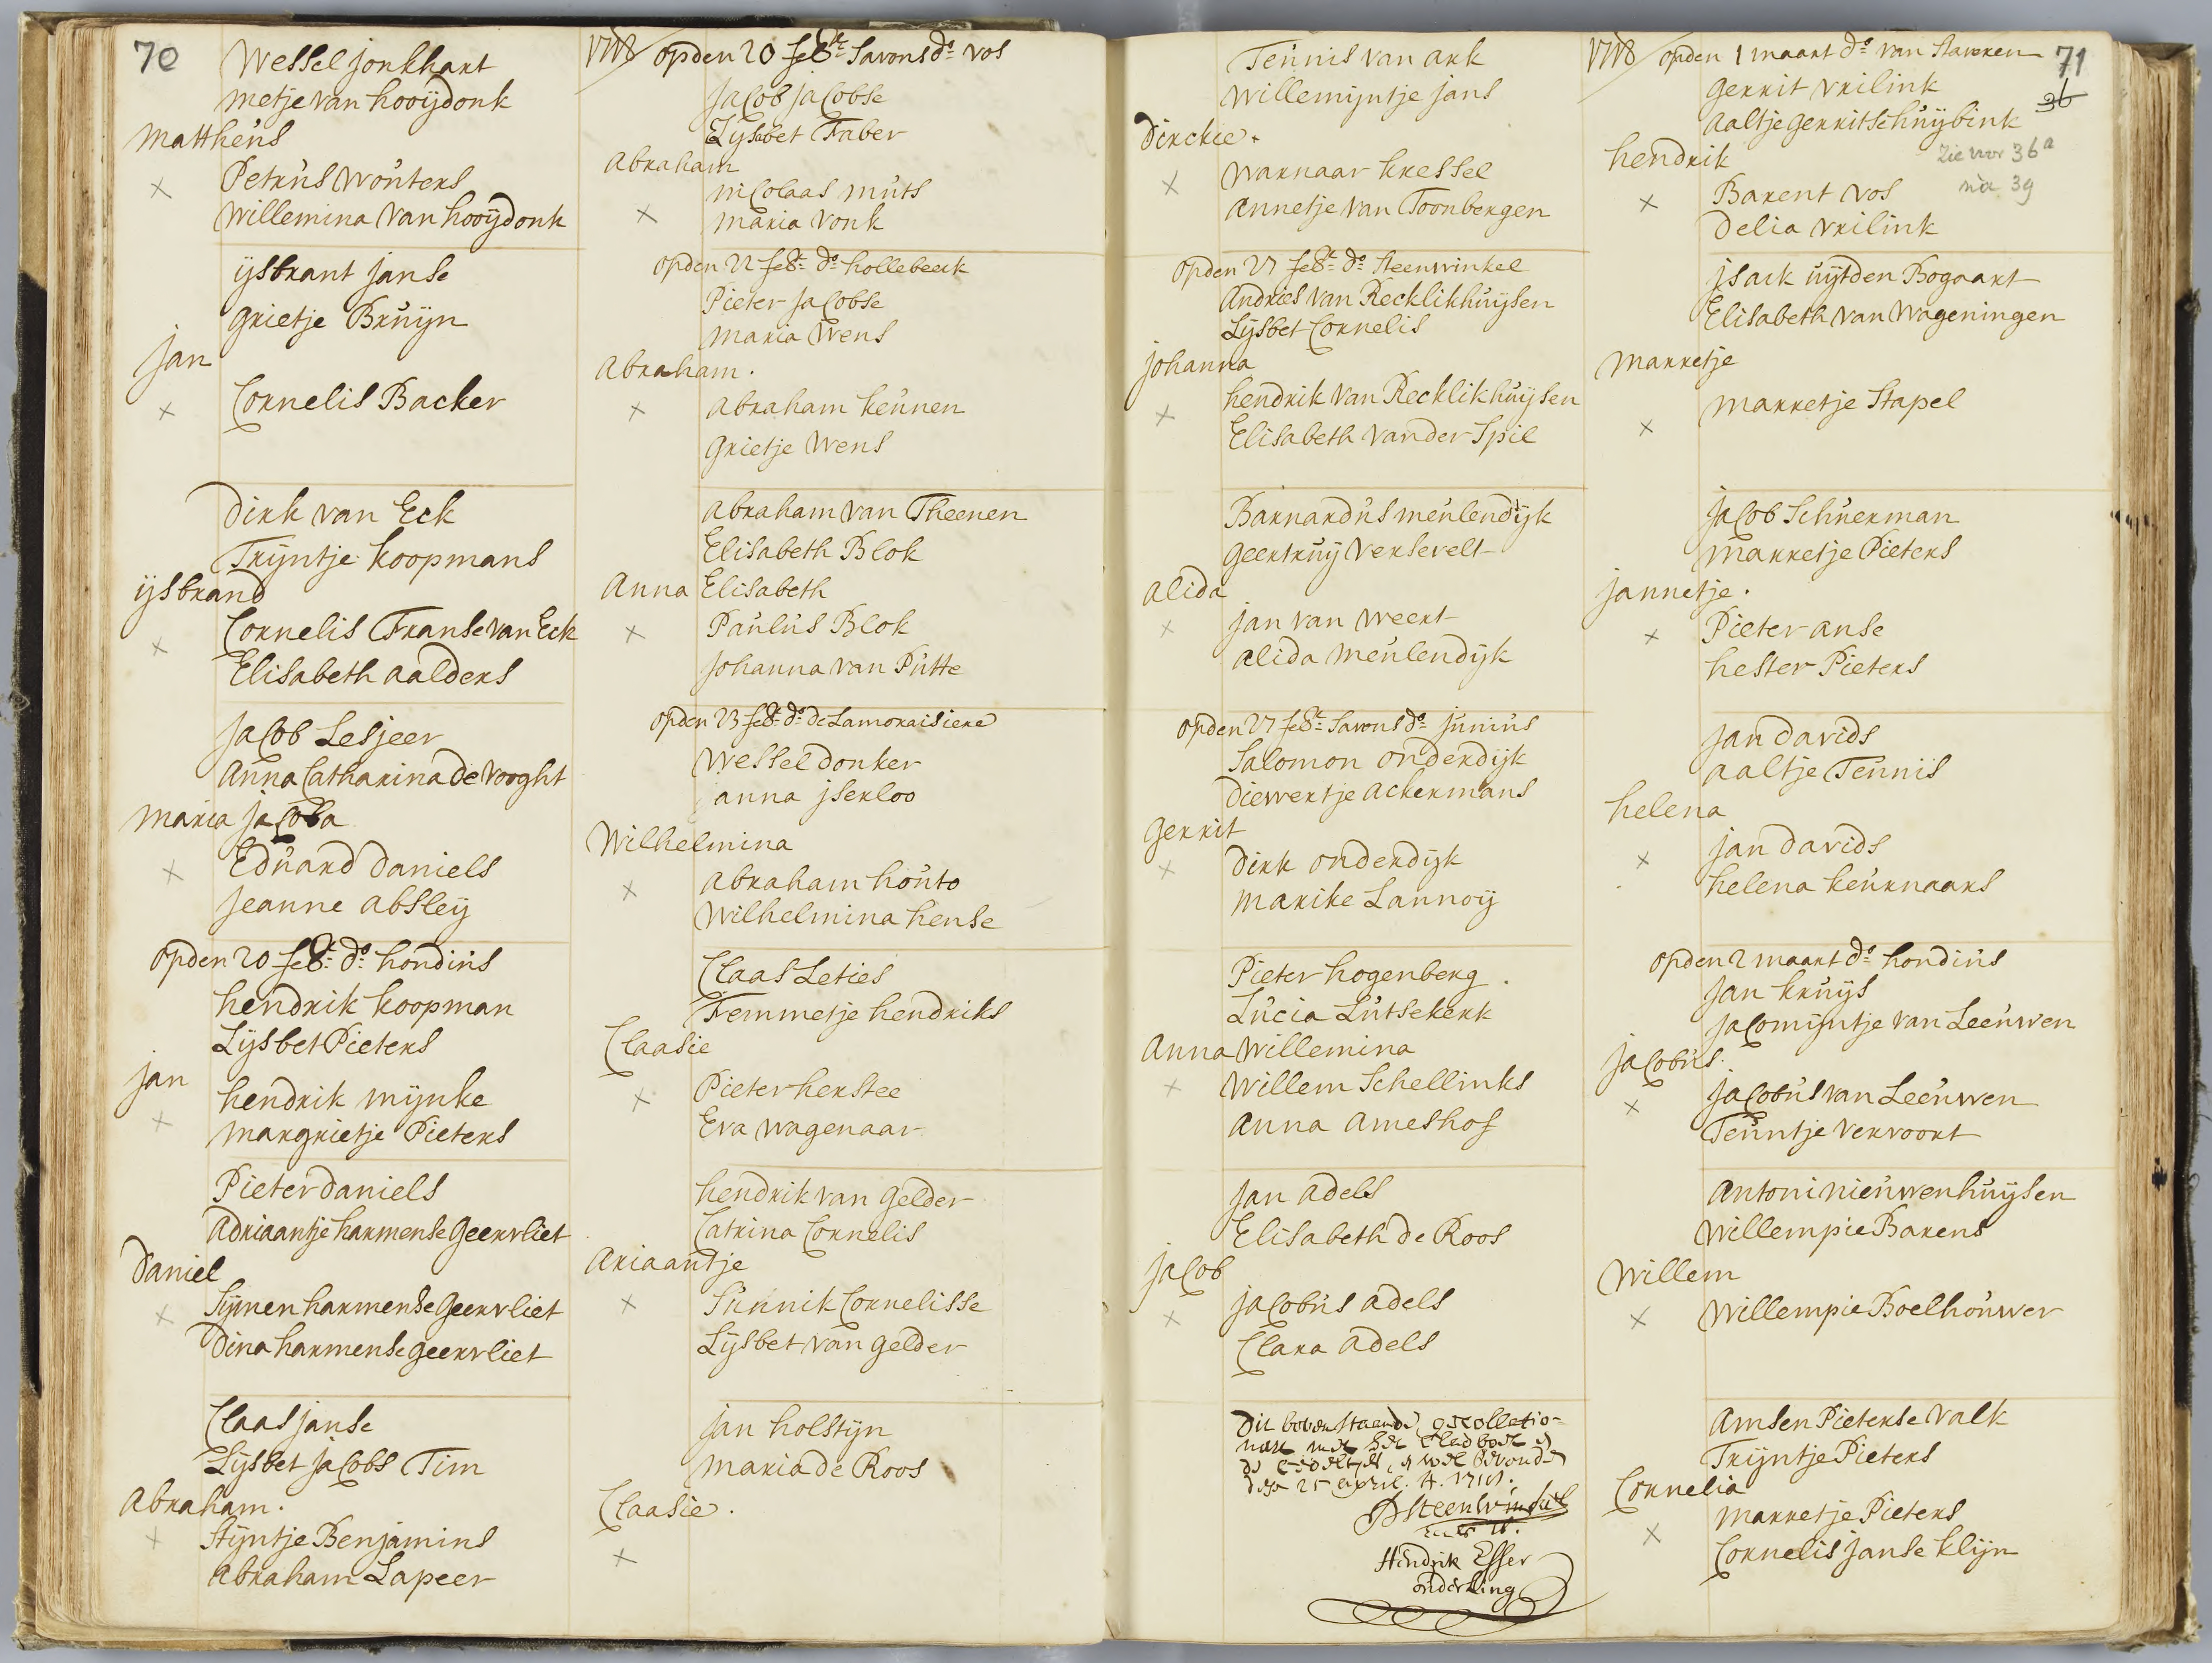 70
Wessel jonkhart
metje van hooijdonk
Mattheus
Petrus Wouters
Willemina Van hooijdonk
ijsbrant janse
grietje Bruijn
jan
Cornelis Backer
Dirk van Eck
Trijntje koopmans
ijsbrand
Cornelis Franse van Eck
Elisabeth aalders
jacob Lesjeer
Anna Catharina de Vooght
maria jacoba
Eduard Daniels
jeanne absleij
op den 20 febr: do: hondius
hendrik koopman
Lijsbet Pieters
jan
hendrik mijnke
margrietje Pieters
Pieter Daniels
Adriaantje harmense geervliet
Daniel
Sijmen harmense geervliet
Dina harmense geervliet
Claas janse
Lijsbet jacobs Tim
Abraham.
Stijntje Benjamins
Abraham Lapeer
1718 op den 20 febr: savons do: vos
jacob jacobse
Lijsbet Faber
Abraham
nicolaas muts
maria vonk
op den 22 febr: do: hollebeek
Pieter jacobse
maria Wens
Abraham.
Abraham keunen
grietje Wens
Abraham van Theenen
Elisabeth Blok
Anna Elisabeth
Paulus Blok
johanna van Putte
op den 23 febr: do: de Lamoraisiere
Wessel donker
anna jserloo
Wilhelmina
Abraham houto
Wilhelmina hense
Claas Leties
Femmetje hendriks
Claasie
Pieter herstee
Eva wagenaar
hendrik van gelder
Catrina Cornelis
Ariaantje
Cornelisse
Lijsbet van gelder
jan holstijn
maria de Roos
Claasie.
Teunis van ark
Willemijntje jans
Dirckie.
Warnaar kressel
Annetje van Toonbergen
op den 27 febr: do: steenwinkel
Andries van Recklikhuijsen
Lijsbet Cornelis
johanna
hendrik van Recklikhuijsen
Elisabeth vander Spil
Barnardus meulendijk
geertruij Versevelt
alida
jan van weert
alida meulendijk
op den 27 febr: savons do: junius
Salomon onderdijk
Diewertje ackermans
gerrit
Dirk onderdijk
marike Lannoij
Pieter hogenberg.
Lucia Lutsekerk
Anna Willemina
Willem Schellinks
Anna Ameshof
jan adels
Elisabeth de Roos
jacob
jacobus adels
Clara adels
Dit bovenstaende gecollatio-
neert met het cladboek
wel bevonden
25 april. A. 1718.
Steenwinkel
Hendrik Esser
ouderling
1718 op den 1 maart do: van staveren
71
gerrit vrilink
36
aaltje gerrit schuijbink
hendrik
zie voor 36a
na 39
Barent vos
Delia vrilink
jsack uijtden Bogaart
Elisabeth van Wageningen
marretje
marretje Stapel
jacob Schuerman
marretje Pieters
jannetje.
Pieter anse
hester Pieters
jan davids
aaltje Teunis
helena
jan davids
helena keurnaars
op den 2 maart do: hondius
jan kruijs
jacomijntje van Leeuwen
jacobus.
jacobus van Leeuwen
Teuntje vervoort
Antoni nieuwenhuijsen
Willempie Barens
Willem
Willempie Boelhouwer
Amsen Pieterse valk
Trijntje Pieters
Cornelia
marretje Pieters
Cornelis janse klijn